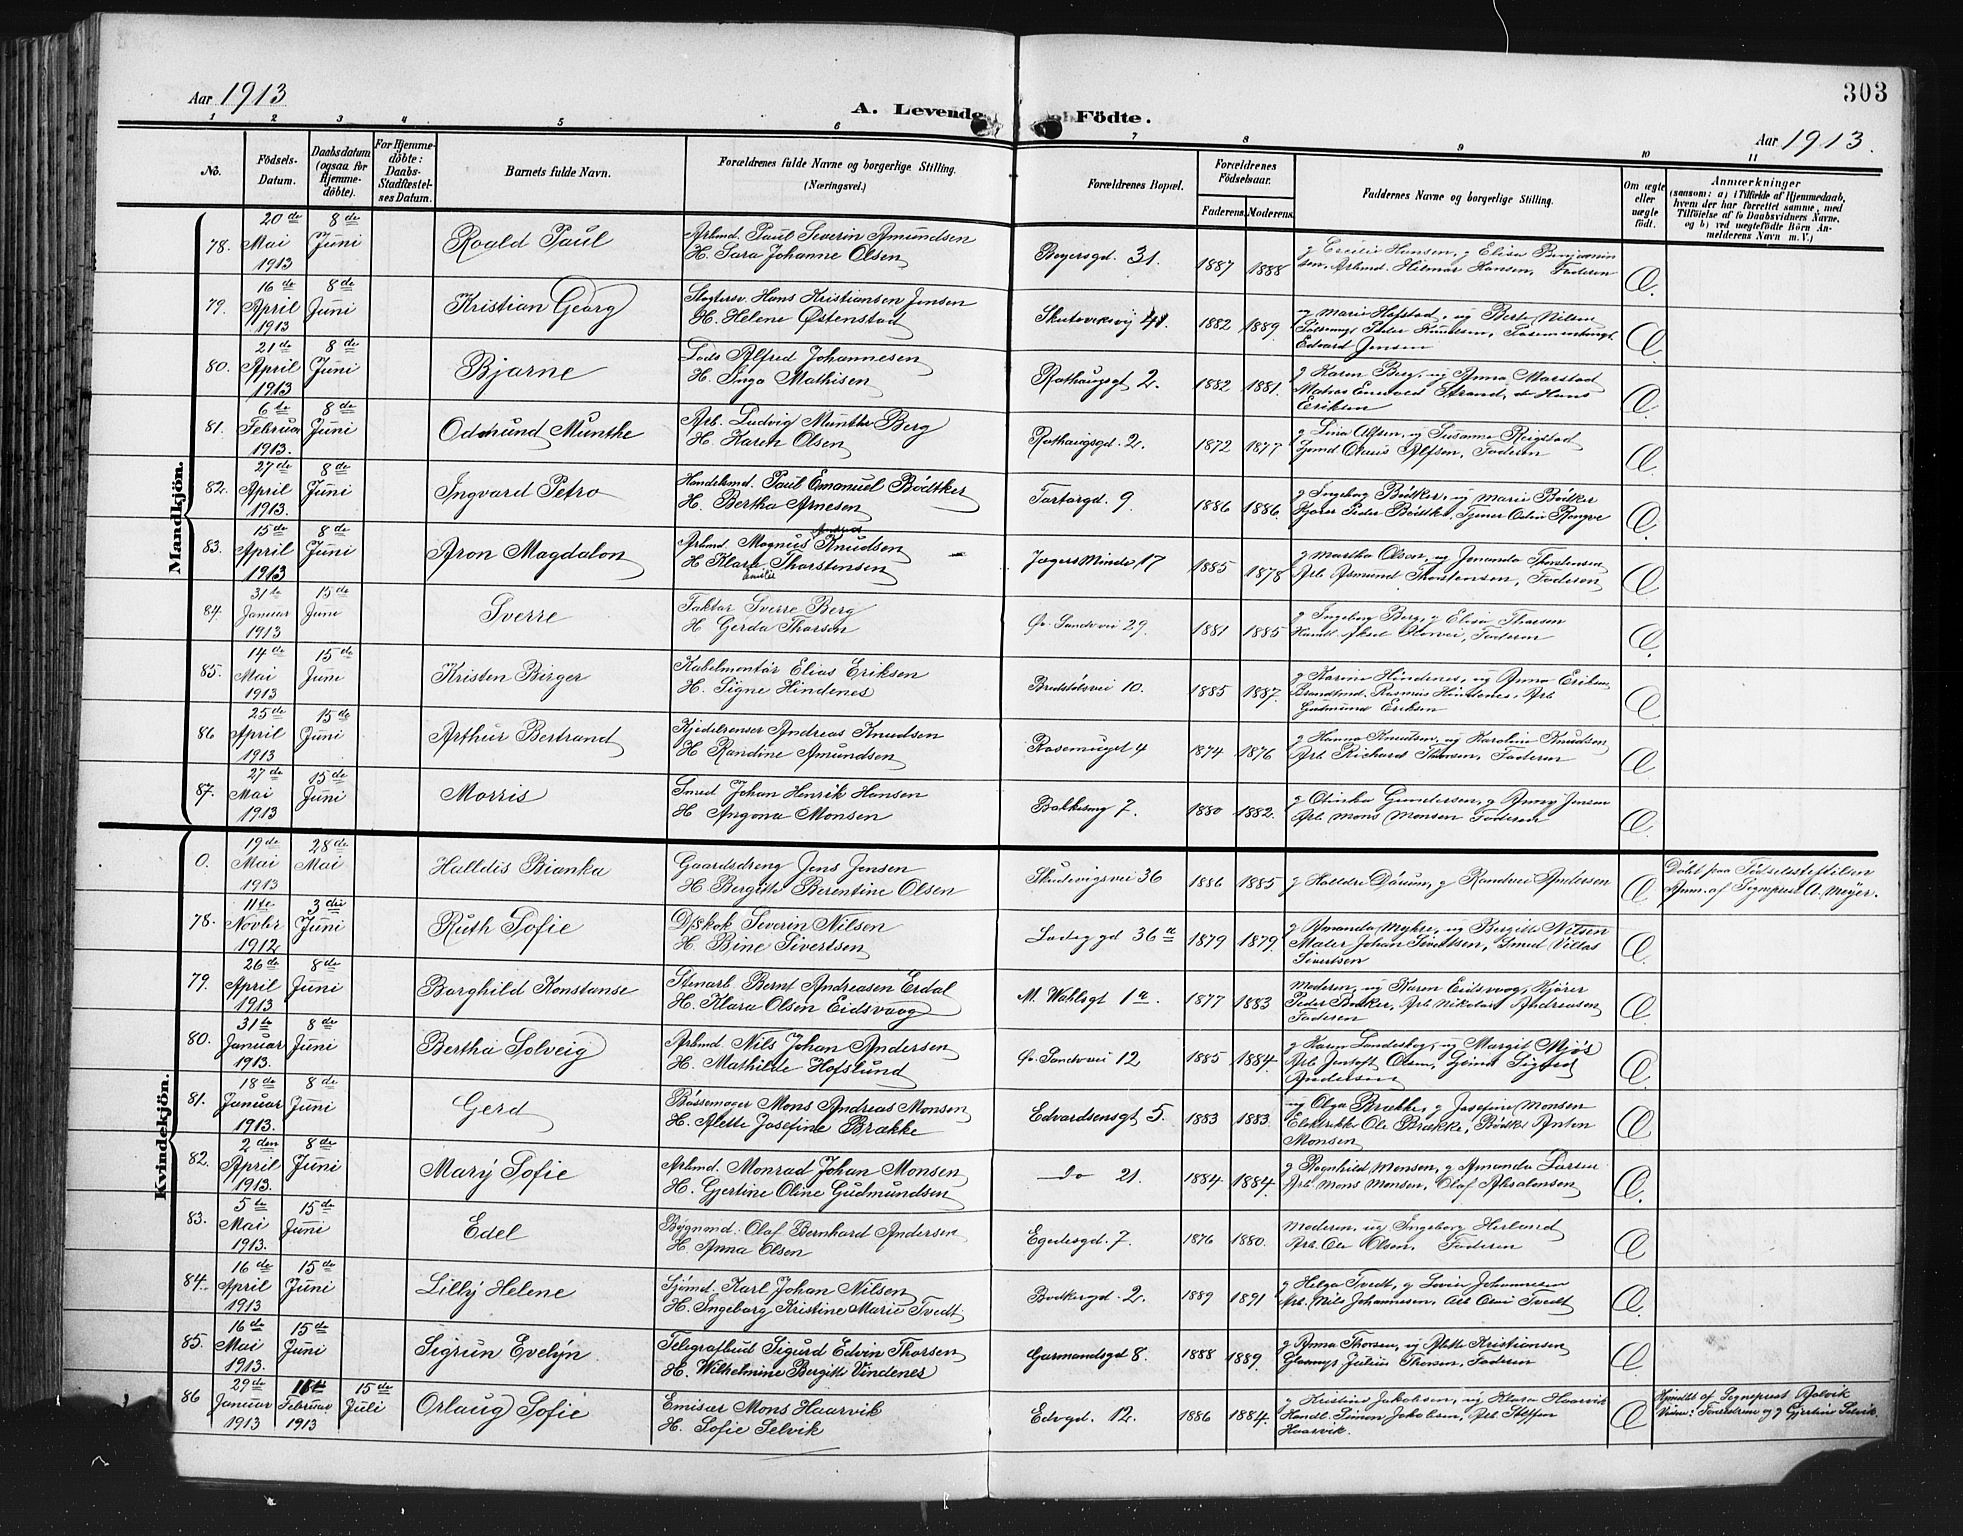 303
Aar 1913
A. Levende Födte.
Aar 1913.
1 2 3 4 5 6 7 8 9 10 11
No. Födsels-Datum. Daabsdatum (ogsaa for Hjemme-döbte). For Hjemme-döbte: Daabs-Stadfæstel-ses Datum. Barnets fulde Navn. Forældrenes fulde Navne og borgerlige Stilling. (Næringsvei.) Forældrenes Bopæl. Forældrenes Födselsaar. Faderens. Moderens. Faddernes Navne og borgerlige Stilling. Om ægte eller uægte födt. Anmærkninger
(saasom: a) i Tilfælde af Hjemmedaab, hvem der har forrettet samme, med Tilföielse af to Daabsvidners Navne, og b) ved uægtefödte Börn An-melderens Navn m. V.)
Mandkjön.
78. 20de Mai 1913 8de Juni Roald Paul Arbmd. Paul Severin Amundsen
H. Sara Johanne Olsen 31. 1887 1888 g Cecilie Hansen, g Elisa Benjamin
sen, Arbmd. Hilmar Hansen, Faderen Æ.
79. 16de April 1913 8de Juni Kristian Georg Hans Kristiansen Jensen
H. Helene Østenstad Skuteviksvij 41. 1882 1889. ug Marie Hofstad, ug Berte Nilsen
Peder Knudsen,
Edvard Jensen Æ.
80. 21de April 1913 8de Juni Bjarne Lods Alfred Johannesen
H. Inga Mathisen Rothaugsgt 2. 1882 1881. g Karen Berg, ug Anna Marstad
Matros Strand, do Hans
Eriksen Æ.
81. 6te Februar 1913. 8de Juni Odmund Munthe Arb. Ludvig Munthe Berg
H. Karen Olsen Rothaugsgd. 2. 1872 1877 g Lina Alfsen, ug Susanne Reigstad
Alfsen, Faderen Æ.
82. 27de April 1913. 8de Juni Ingvard Petro Handelsmd. Paul Emanuel Bödtker
H. Bertha Arnesen Tartargd. 9 1886 1886. g Ingeborg Bödker, ug Marie Bödker
Kjører Peder Bödtk, Tjener Odin Rongve Æ.
83. 15de April 1913 8de Juni Aron Magdalon Arbmd Magnus Knudsen
H Klara Thorstensen Jægers Minde 17 1885 1878 g Martha Olsen, ug Jomanda Thorstensen
Arb Asmund Thorstensen, Faderen Æ.
84. 31te Januar 1913 15de Juni Sverre Faktor Sverre Berg
H Gerda Thorsen Øv. Sandvvei 29. 1881 1885 g Ingeborg Berg, g Elisa Thorsen
Faderen Æ.
85. 14de Mai 1913 15de Juni Kristen Birger Kabelmontör Elias Eriksen
H. Signe Hindenes Bredstölsvei 10. 1885 1887. g Karine Hindenes, ug Anna Eriksen
Brandtmd. Rasmus Hindenes, Arb
Gudmund Eriksen Æ
86 25de April 1913 15de Juni Arthur Bertrand Kjedelrenser Andreas Knudsen
H Randine Amundsen Rosesmuget 4 1874 1876 g Hanna Knudsen, ug Karoline Knudsen
Arb Richard Thomsen, Faderen Æ
87. 27de Mai 1913 15de Juni Morris Smed Johan Henrik Hansen
H Angona Monsen Bakkesmg 7. 1880 1882. g Otinka Gundersen, g Anny Jensen
Arb Mons Monsen Faderen Æ.
Kvindekjön.
0. 19de Mai 1913 28de Mai Halldis Bianka Gaardsdreng Jens Jensen
H Bergitte Berentine Olsen Skudevigsvei 36 1886 1885 g Halldis Dörum, g Randvei Andersen Æ Döbt paa Födselsstiftelsen
Anm. af Sognepræst A. Meyer.
78. 11te Novbr 1912 3die Juni Ruth Sofie D/skok Severin Nilsen
H. Bine Sivertsen Ladeg gd 36a 1879 1879. g Amanda Myhre, ug Bergitte Nilsen
Maler Johan Sivertsen, Smed Villas
Sivertsen Æ.
79. 26de April 1913 8de Juni Borghild Konstanse Stenarb Bernt Andreasen Erdal
H. Klara Olsen Eidsvaag M. Wahlsgt 1a. 1877 1883 Moderen, ug Karen Eidsvaag, Kjører
Peder Bødker, Arb Nikolai Andreasen
Faderen Æ.
80. 31te Januar 1913. 8de Juni Bertha Solveig Arbmd Nils Johan Andersen
H. Mathilde Hofslund Øv. Sandvvei 12 1885 1884. g Karen Landeskog, ug Margit Mjös
Arb Jentoft Olsen, Sigfred
Andersen Æ.
81. 18de Januar 1913. 8de Juni Gerd Bössemager Mons Andreas Monsen
H. Alette Josefine Brække Edvardsensgt 5. 1883 1883. ug Olga Brække, g Josefine Monsen
Ole Brække, Bödker Anten
Monsen Æ
82. 2den April 1913. 8de Juni Mary Sofie Arbmd. Monrad Johan Monsen
H. Gjertine Oline Gudmundsen do 21. 1884 1884. g Ragnhild Monsen, g Amanda Larsen
Arb Mons Monsen, Olaf Absalonsen Æ.
83. 5te Mai 1913. 15de Juni Edel Bygnmd. Olaf Bernhard Andersen
H. Anna Olsen Egedesgd. 7. 1876 1880. Moderen, ug Ingeborg Herland
Arb. Ole Olsen, Faderen Æ
84. 16de April 1913 15de Juni Lilly Helene Sjömd. Karl Johan Nilsen
H. Ingeborg Kristine Marie Tvedt Bödkergd. 2. 1889 1891 g Helga Tvedt, g Lovise Johannesen
Arb. Nils Johannesen, Arb Tvedt Æ.
85. 16de Mai 1913. 15de Juni Sigrun Evelyn Telegrafbud Sigurd Edvin Thorsen
H. Wilhelmine Bergitte Vindenes Garmandsgd 8. 1888 1889. g Anna Thorsen, ug Alette Kristiansen
Julius Thorsen, Faderen Æ
86 29de Januar 1913 11te Februar 1913 15de Juli Orlaug Sofie Emisær Mons Haarvik
H. Sofie Selvik Edvgd. 12. 1886 1884. g Kristine Jakobsen, ug Klara Haarvik
Handl. Simon Jakobsen, Arb Steffen
Haarvik. Æ Hjmdöbt af Sognepræst
g Gjertine Selvik.